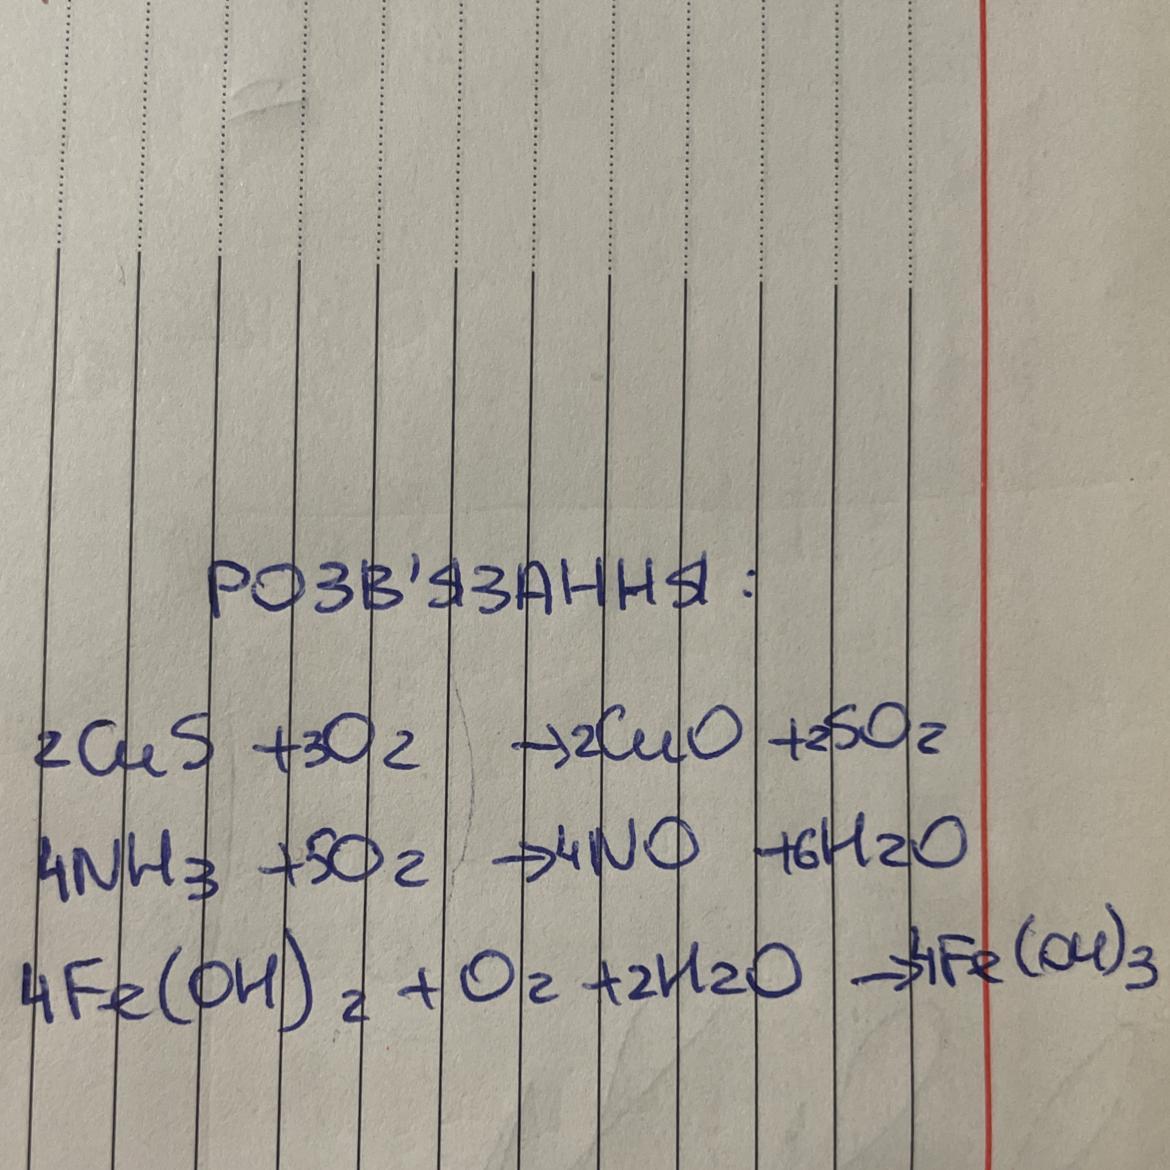 РОЗВ'ЯЗАННЯ :
2CuS +3O2 →2CuO +2SO2
4NH3 +5O2 →4NO +6H2O
4Fe(OH)2 + O2 +2H2O →4Fe(OH)3